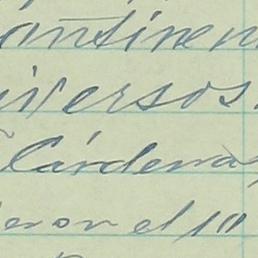 antinen
iversos.
Cárdenas,
eron el 1º